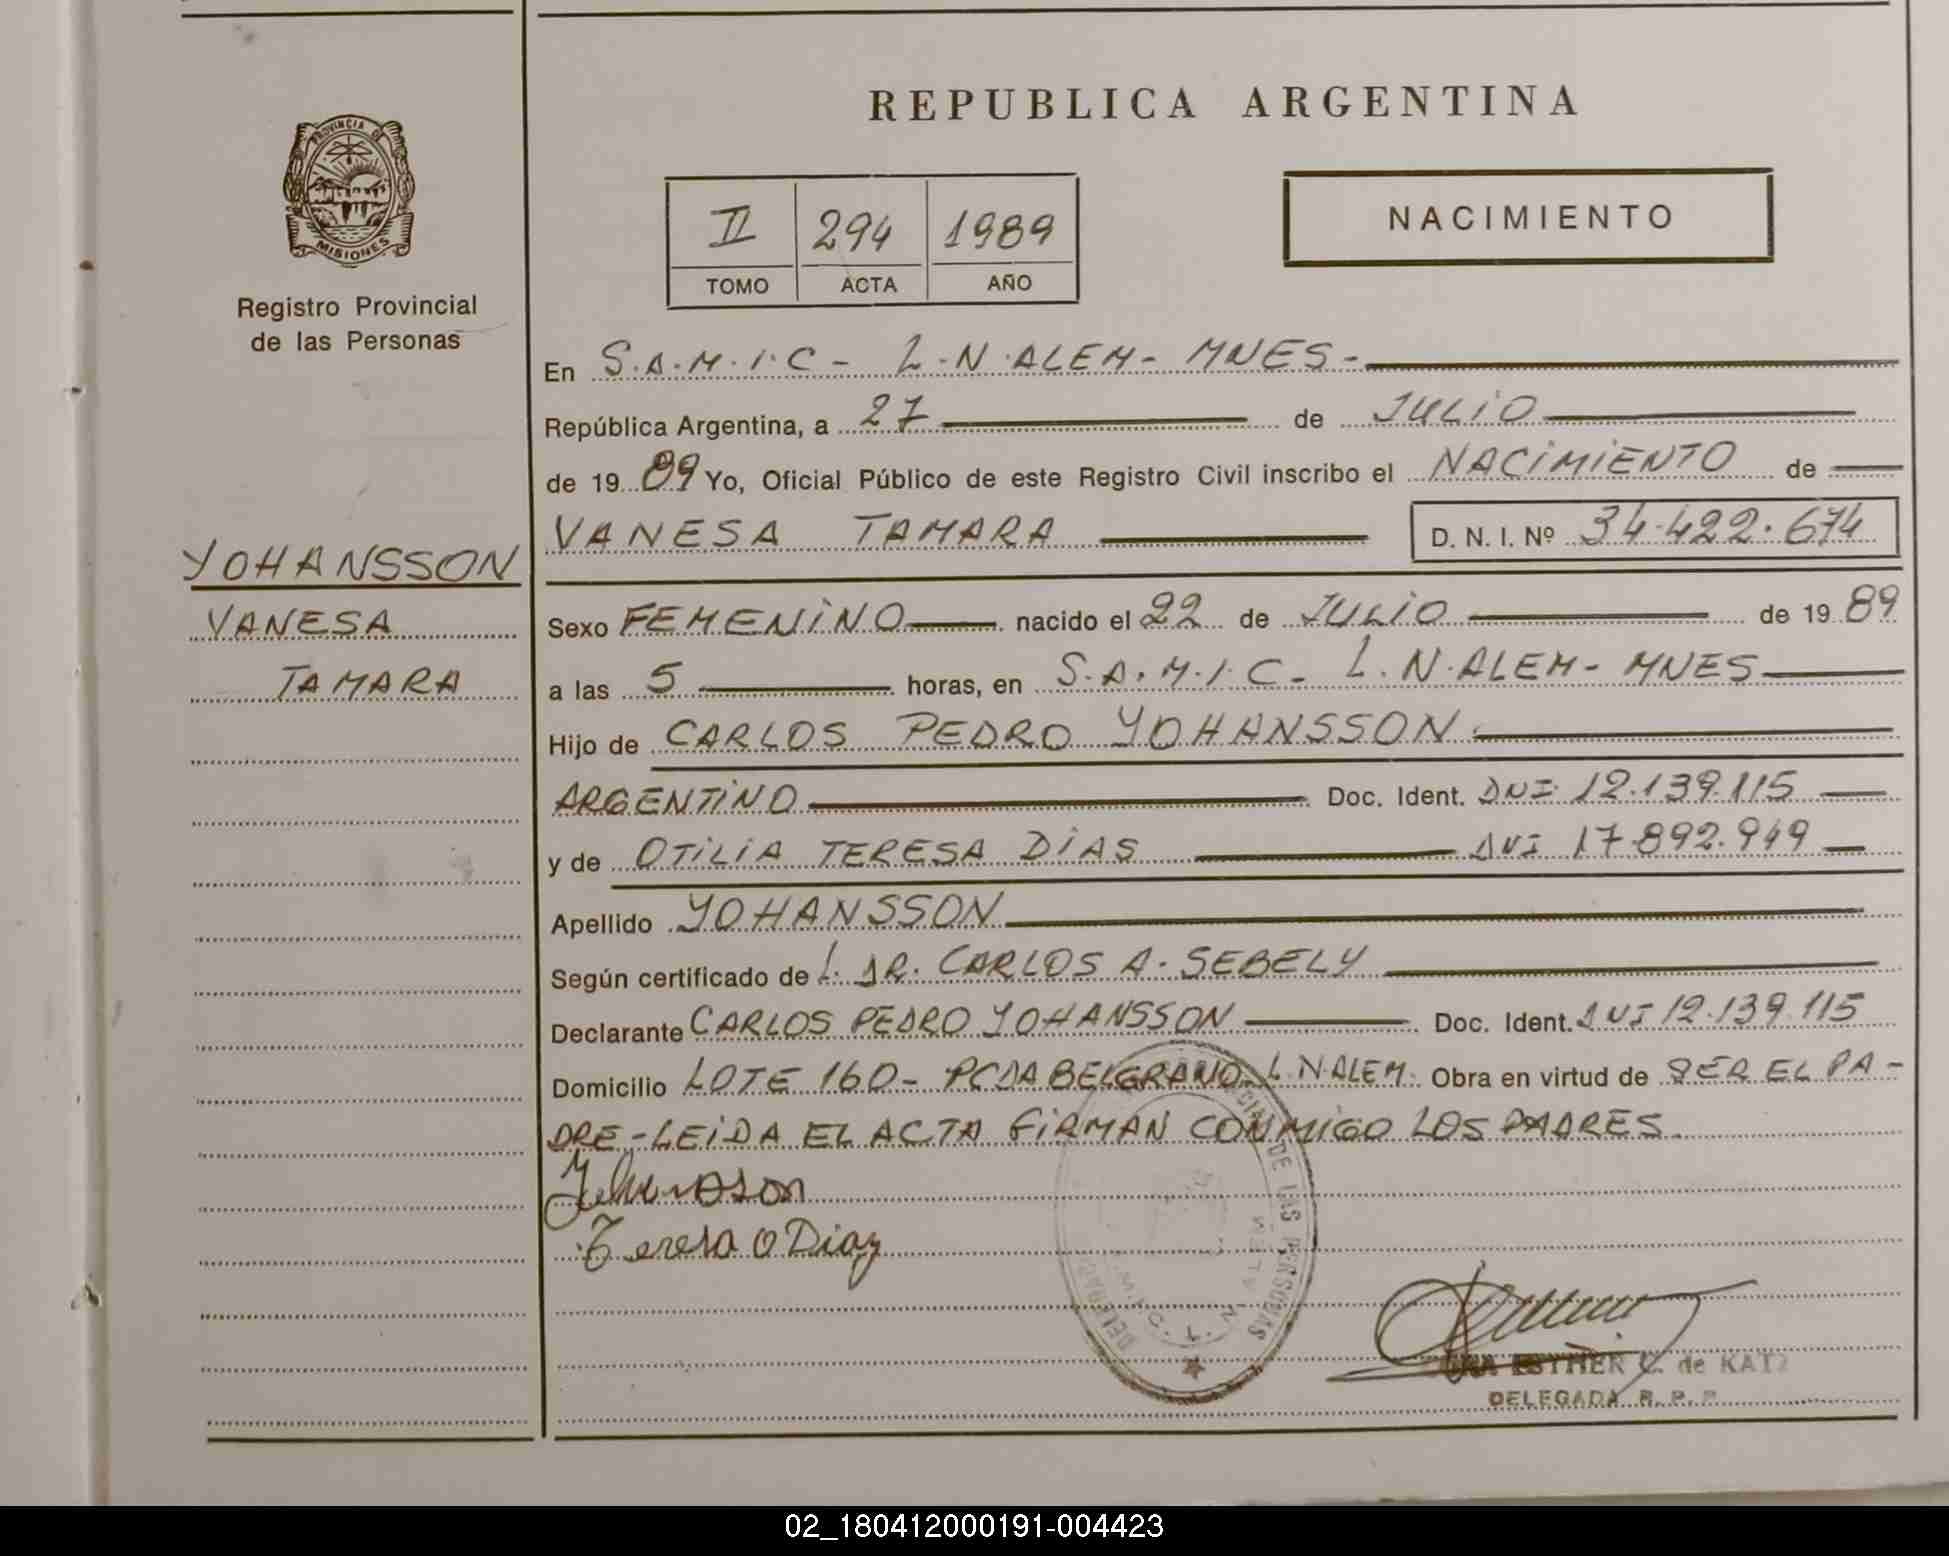 REPUBLICA ARGENTINA
PROVINCIA DE
MISIONES
Registro Provincial
de las Personas
II 294 1989
TOMO ACTA AÑO
NACIMIENTO
En S.A.M.I.C - L.N.ALEM - MNES -
República Argentina, a 27 de JULIO
de 19 89 Yo, Oficial Público de este Registro Civil inscribo el NACIMIENTO de
VANESA TAMARA D. N. I. Nº 34.422.674
YOHANSSON
VANESA
TAMARA
Sexo FEMENINO nacido el 22 de JULIO de 19 89
a las 5 horas, en S.A.M.I.C - L.N.ALEM - MNES
Hijo de CARLOS PEDRO YOHANSSON
ARGENTINO Doc. Ident. DNI 12.139.115
y de OTILIA TERESA DIAS DNI 17.892.949
Apellido YOHANSSON
Según certificado de L. DR. CARLOS A. SEBELY
Declarante CARLOS PEDRO YOHANSSON Doc. Ident. DNI 12.139.115
Domicilio LOTE 160 - PCDA BELGRANO - L.N.ALEM. Obra en virtud de SER EL PA-
DRE - LEIDA EL ACTA FIRMAN CONMIGO LOS PADRES.
Teresa O Diaz
DE LAS PERSONAS
N. ALEM
ESTHER C. de KATZ
DELEGADA R. P. P.
02_180412000191-004423